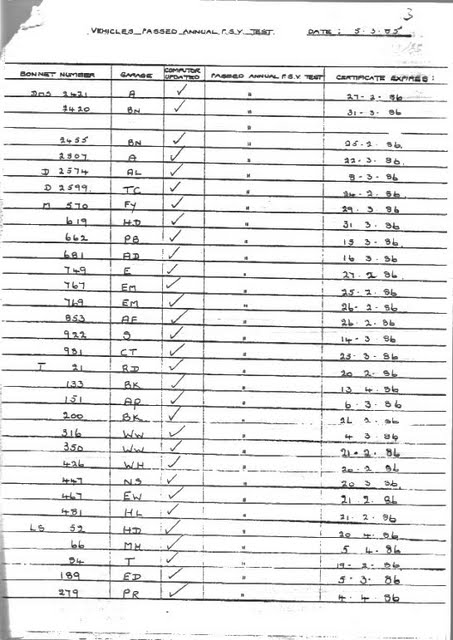 3
VEHICLES PASSED ANNUAL P.S.V TEST. DATE : 5.3.85
BONNET NUMBER GARAGE COMPUTOR UPDATED PASSED ANNUAL P.S.V TEST CERTIFICATE EXPIRES:
DMS 2421 A ✓ " 27-2-86
2420 BN ✓ " 31-3-86
"
2455 BN ✓ " 25.2.86
2507 A ✓ " 22.3.86
D 2574 AL ✓ " 8-3-86
D 2599. TC ✓ " 26-2-86
M 570 FY ✓ " 29.3.86
619 HD ✓ " 31.3.86
662 PB ✓ " 15.3.86
681 AD ✓ " 16.3.86
749 E ✓ " 27.2.86
767 EM ✓ " 25-2.86
769 EM ✓ " 26-2-86
853 AF ✓ " 26.2.86
922 S ✓ " 14-3-86
981 CT ✓ " 25-3-86
T 21 RD ✓ " 20.2.86
133 BK ✓ " 13.4.86
151 AP ✓ " 6.3.86
200 BK ✓ " 2.86
316 WW ✓ " 4.3.86
350 WW ✓ " 21-2.86
426 WH ✓ " 20-2.86
447 NS ✓ " 20.3.86
467 EW ✓ " 21.2.86
481 HL ✓ " 21.2.86
LS 52 HD ✓ " 20.4.86
66 MH ✓ " 5.4.86
84 T ✓ " 19-2-86
189 ED ✓ " 5-3.86
279 PR ✓ " 4.4.86